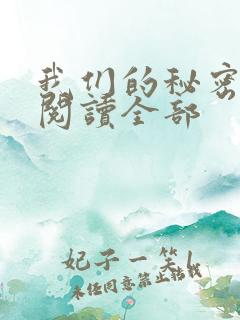 我们的秘密
閱讀全部
妃子一笑
未任同意禁止转载